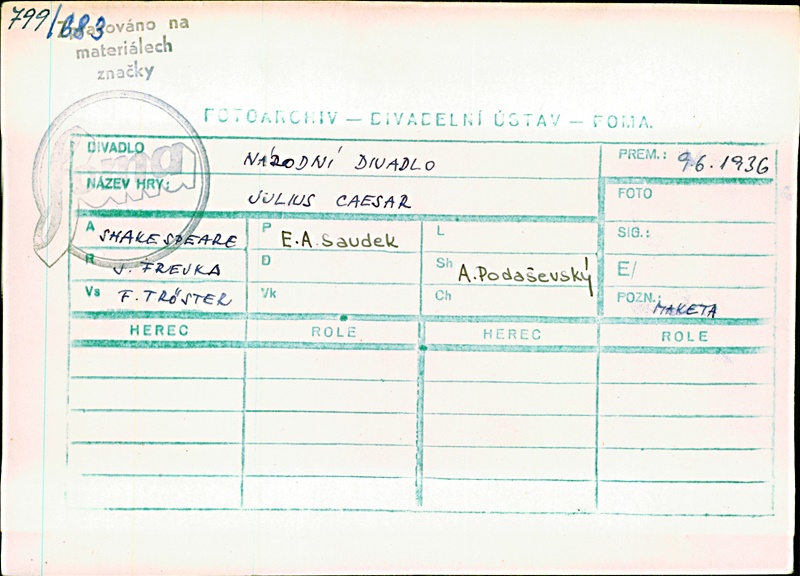 799/683
Zpracováno na
materiálech
značky
foma
FOTOARCHIV — DIVADELNÍ ÚSTAV — FOMA.
DIVADLO NÁRODNÍ DIVADLO PREM.: 9.6.1936
NÁZEV HRY: JULIUS CAESAR FOTO
A SHAKESPEARE P E.A. Saudek L SIG.:
R J. FREJKA D Sh A. Podaševský E/
Vs F. TRÖSTER Vk Ch POZN.: MAKETA
HEREC ROLE HEREC ROLE